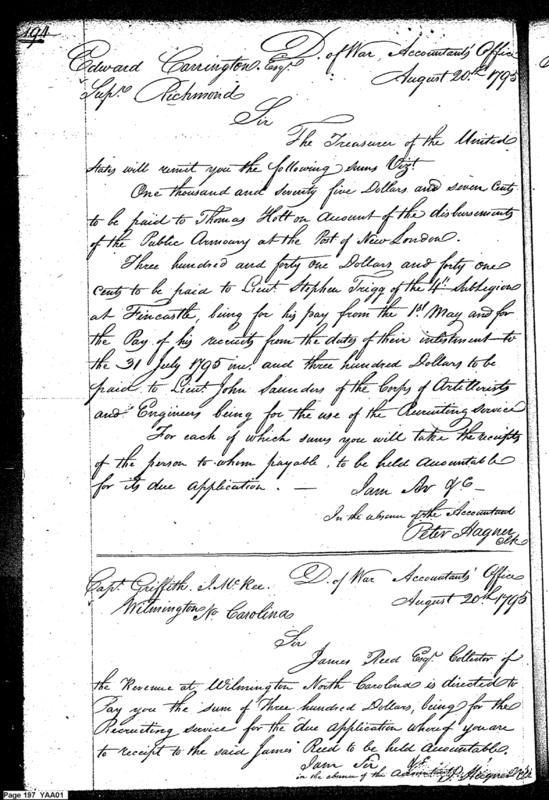 194
D. of War, Accountants Office
Edward Carrington Esqr.
August 20th 1795
Supr. Richmond
Sir
The Treasurer of the United
States will remit you the following sums Vizt.
One thousand and seventy five Dollars and seven Cents
to be paid to Thomas Holt on Account of the disbursements
of the Public Armoury at the Post of New London.
Three hundred and forty one Dollars and forty one
Cents to be paid to Lieut. Stephen Trigg of the 4th SubLegion
at Fincastle, being for his pay from the 1st. May and for
the Pay of his recruits from the dates of their inlistment to
the 31 July 1795 inc. and three hundred Dollars to be
paid to Lieut. John Saunders of the Corps of Artillerists
and Engineers being for the use of the Recruiting service
For each of which sums you will take the receipts
of the person to whom payable, to be held accountable
for its due application. — I am Sir &C —
In the absence of the Accountant
Peter Hagner
Clk
Capt. Griffith J. McRee. D. of War Accountants' Office
Wilmington No Carolina August 20th 1795
Sir
James Reed Esqr. Collector of
the Revenue at Wilmington North Carolina is directed to
Pay you the sum of Three hundred Dollars, being for the
Recruiting service for the due application whereof you are
to receipt to the said James Reed to be held Accountable.
I am Sir &C
in the absence of the Accountant P. Hagner Clk
Page 197 YAA01